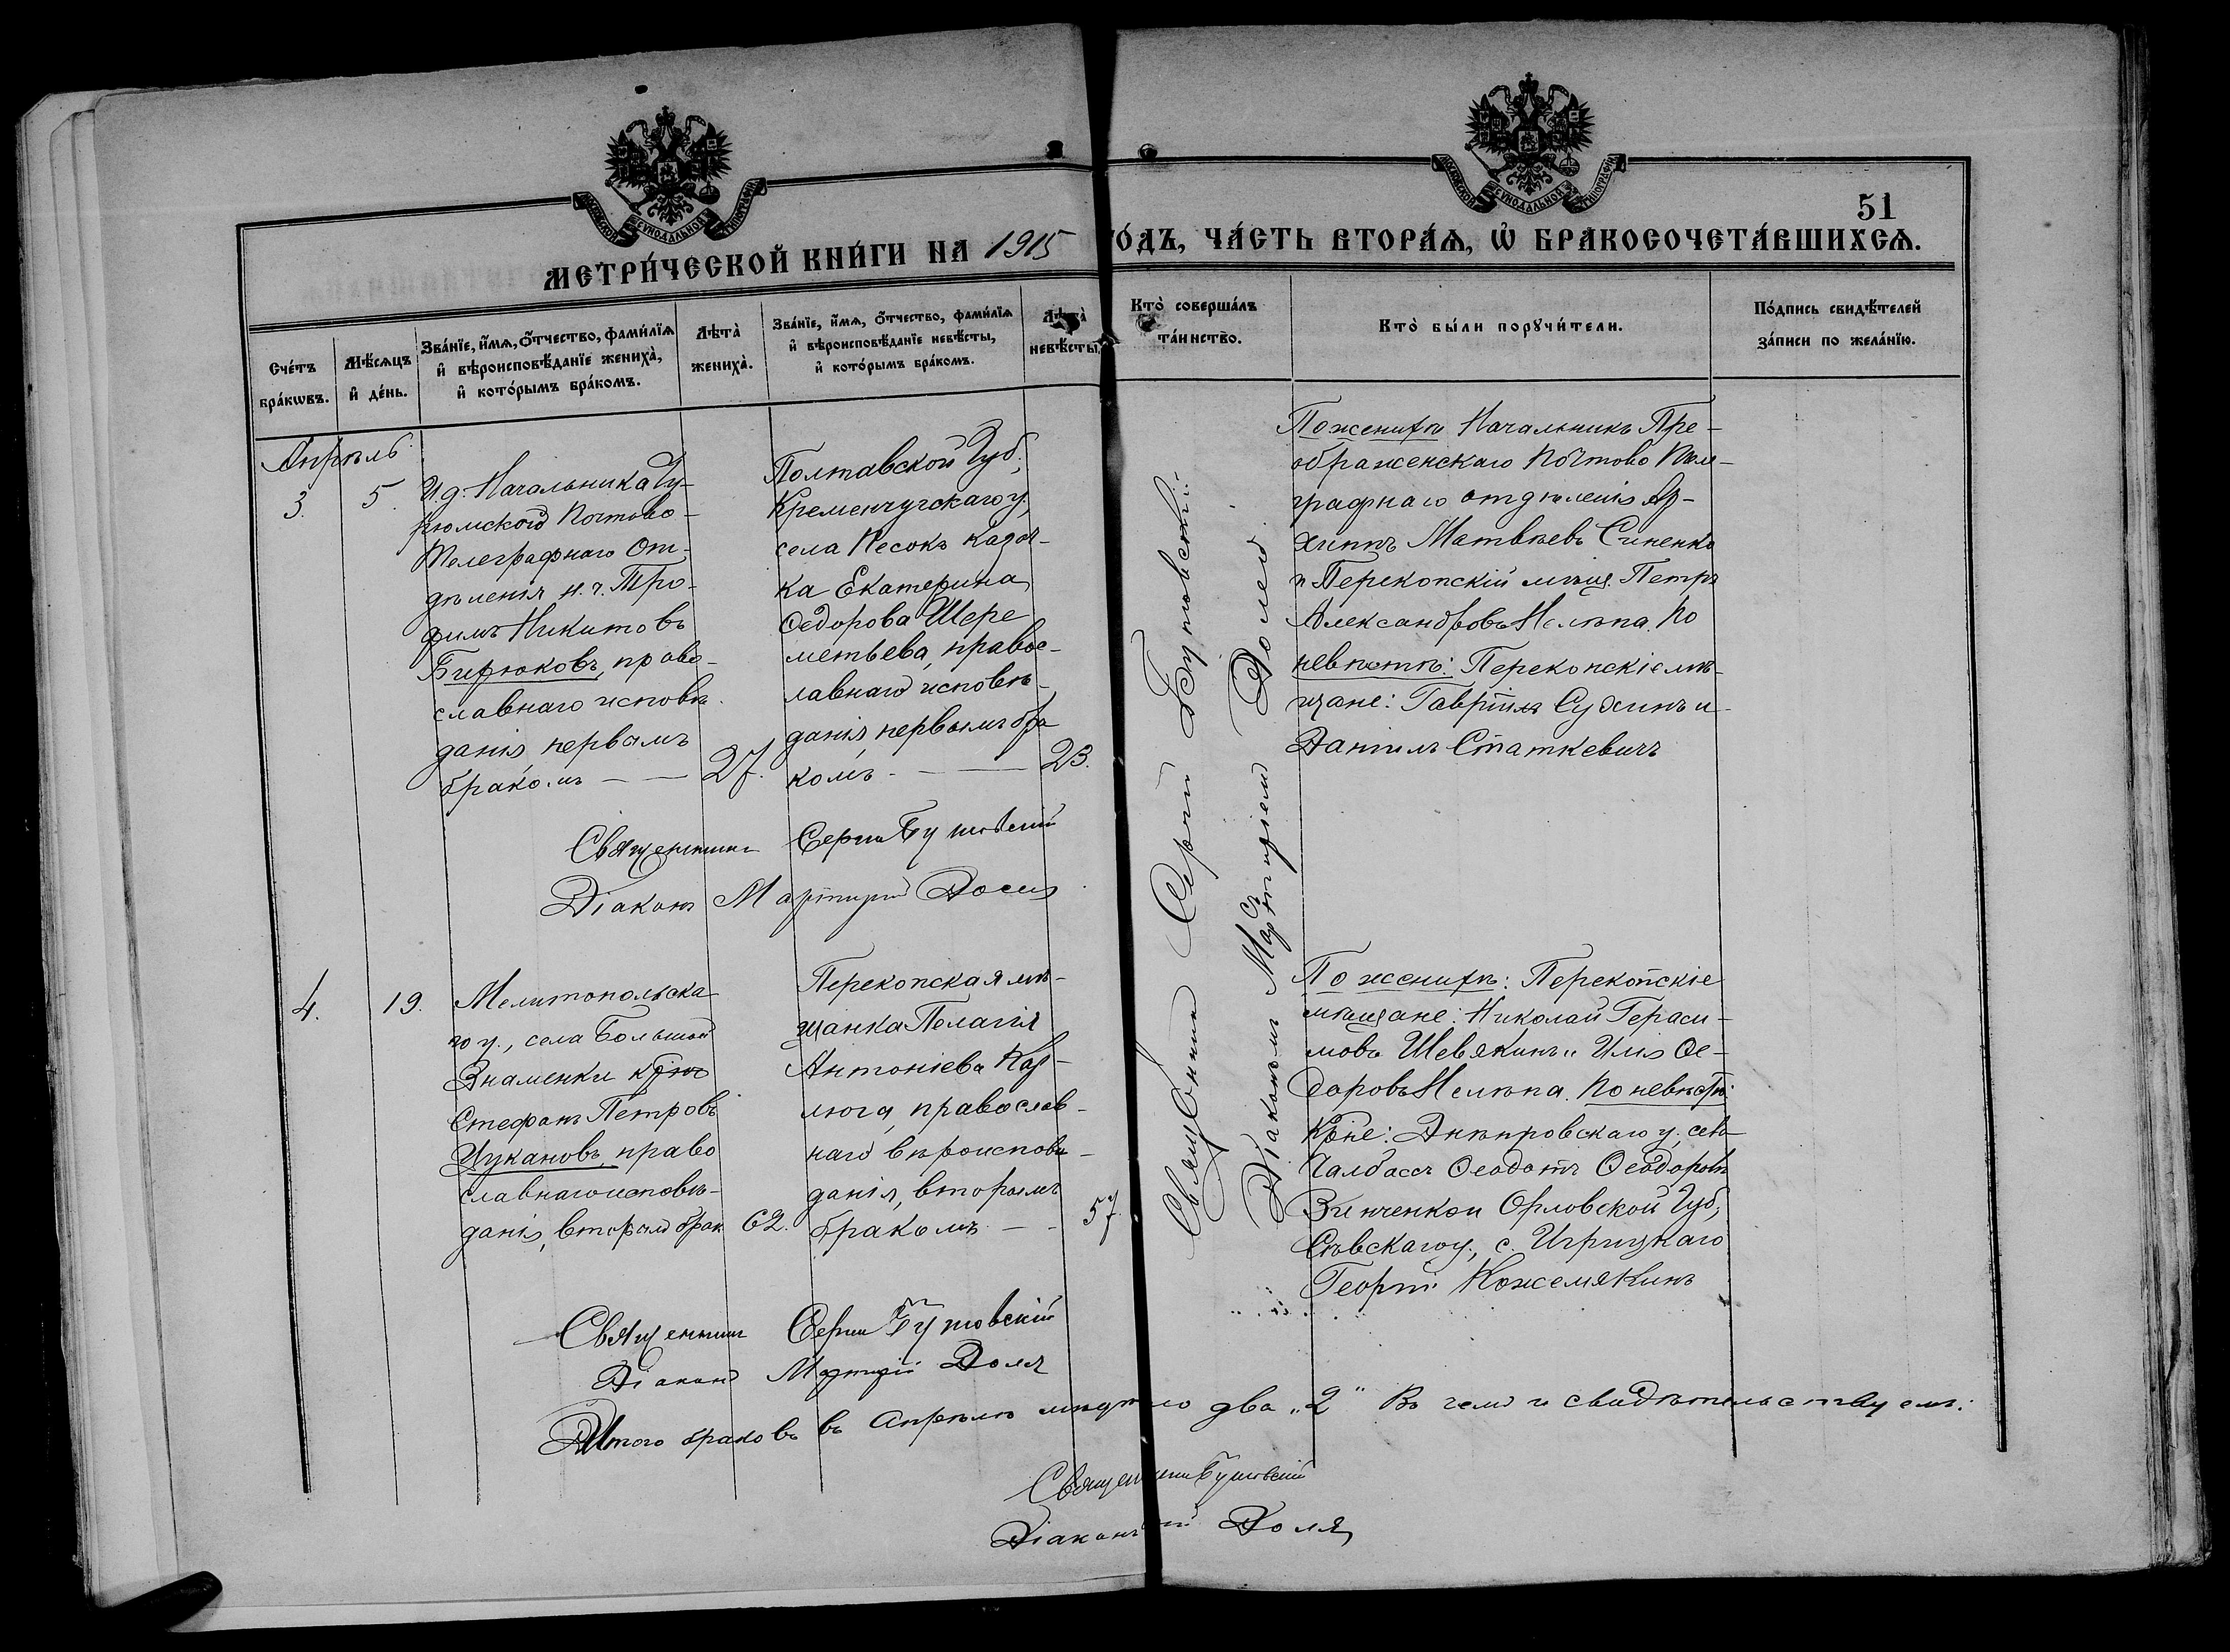 51
МЕТРИ́ЧЕСКОЙ КНИ́ГИ НА 1915 ГО́ДЪ, ЧА́СТЬ ВТОРА́Ѧ, Ѽ БРАКОСОЧЕТА́ВШИХСѦ.
Сче́тъ
бра́кѡвъ.
Мѣ́сѧцъ
и҆ де́нь.
Зва́нїе, и҆́мѧ, ѻ҆́тчество, фами́лїѧ
и҆ вѣроисповѣ́данїе жениха̀,
и҆ кото́рымъ бра́комъ.
Лѣта̀
жениха̀.
Зва́нїе, и҆́мѧ, ѻ҆́тчество, фами́лїѧ
и҆ вѣроисповѣ́данїе невѣ́сты,
и҆ кото́рымъ бра́комъ.
Лѣта̀
невѣ́сты.
Кто̀ соверша́лъ
та́инство.
Кто̀ бы́ли порꙋчи́тели.
По́дпись свидѣ́телей
за́писи по жела́нїю.
Апрѣль
3.
5.
И.д. Начальника Чу-
рюмского Почтово-
Телеграфнаго От-
дѣленія н.ч. Тро-
фимъ Никитовъ
Бирюковъ, право-
славнаго исповѣ-
данія, первымъ
бракомъ — — 27.
Полтавской Губ.,
Кременчугскаго у.,
села Песокъ казач-
ка Екатерина
Ѳедорова Шере
метьева, правос-
лавнаго исповѣ-
данія, первымъ бра
комъ — — 23.
Священникъ Сергій Бутовскій
Діаконъ Мартирій Доля
Священникъ Сергій Бутовскій
Діакономъ Мартиріемъ Долею
По женихѣ Начальникъ Пре-
ображенскаго Почтово Теле-
графнаго отдѣленія Ар-
хиппъ Матвѣевъ Синенко
и Перекопскій мѣщ. Петръ
Александровъ Нелѣпа. По
невѣстѣ: Перекопскіе мѣ-
щане: Гавріилъ Сухинъ и
Даніилъ Статкевичъ
4.
19.
Мелитопольска
го у., села Большой
Знаменки кр-нъ
Стефанъ Петровъ
Цукановъ, право
славнаго исповѣ-
данія, вторымъ брак. 62.
Перекопская мѣ-
щанка Пелагія
Антоніева Кар-
люга, православ-
наго вѣроисповѣ-
данія, вторымъ
бракомъ — - 57.
По женихѣ: Перекопскіе
мѣщане: Николай Гераси-
мовъ Шевякинъ и Илія Ѳе-
доровъ Нелѣпа. По невѣстѣ:
кр-не: Днѣпровскаго у., села
Чалбассъ Ѳеодотъ Ѳеодоровъ
Зинченко и Орловской Губ.,
Сѣвскаго у., с. Игрицкаго
Георгій Кожемякинъ
Священникъ Сергій Бутовскій
Діаконъ Мартирій Доля
Итого браковъ въ Апрѣлѣ мѣсяцѣ два „2" Въ чемъ и свидѣтельствуемъ:
Священникъ Бутовскій
Діаконъ Доля